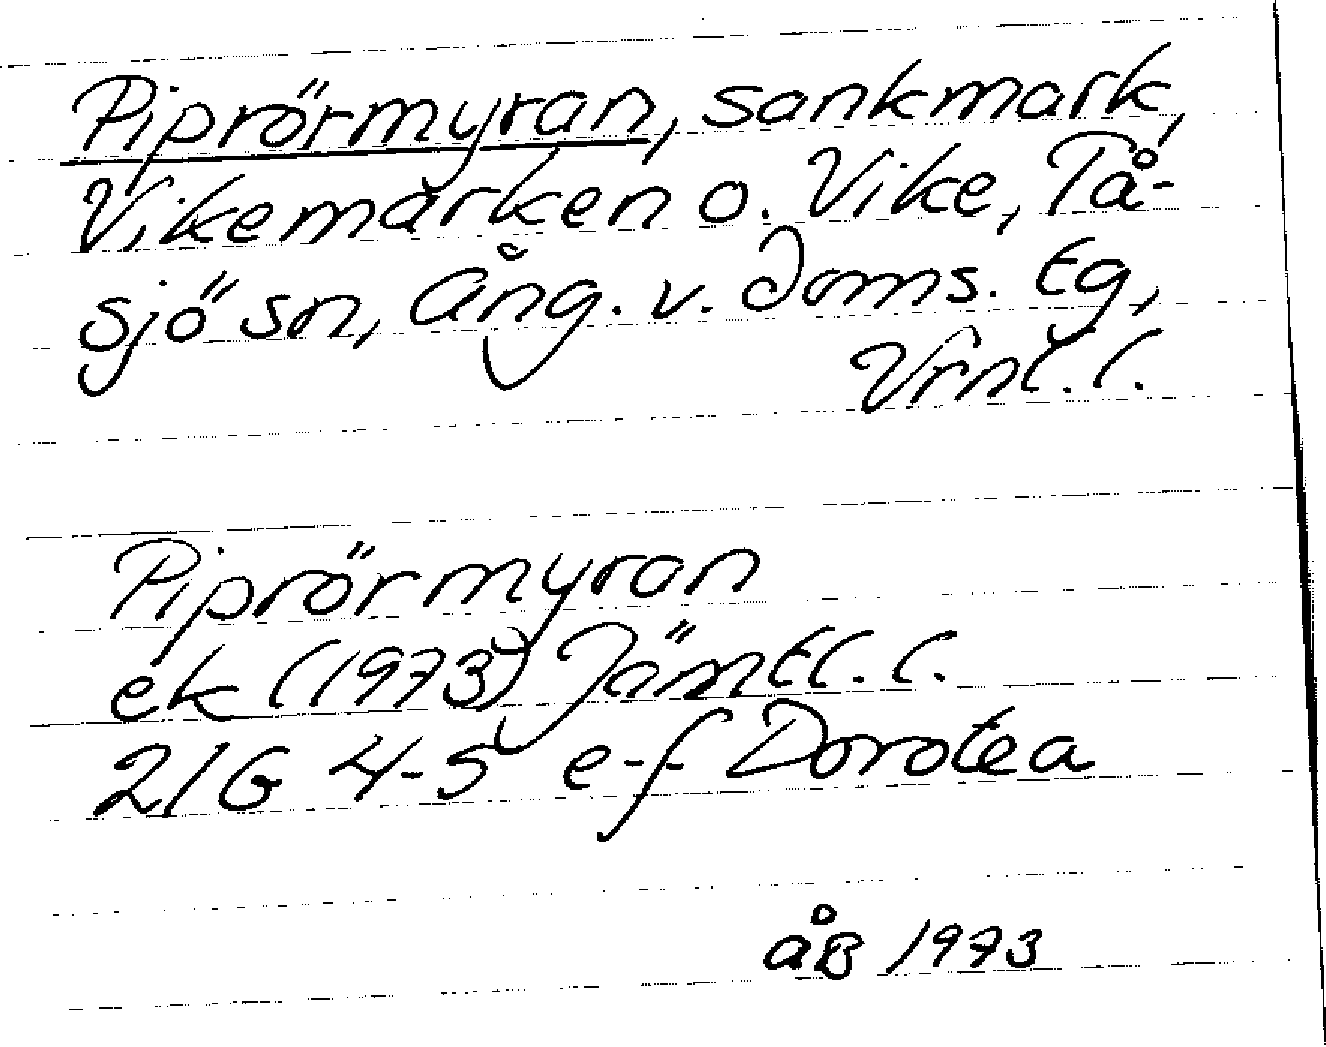 Piprörmyran, sankmark,
Vikemarken o. Vike, Tå-
sjö sn, Ång. v. doms. tg,
Vrnl. l.
Piprörmyran
ek (1973) Jämtl. l.
21G 4-5 e-f Dorotea
åB 1973